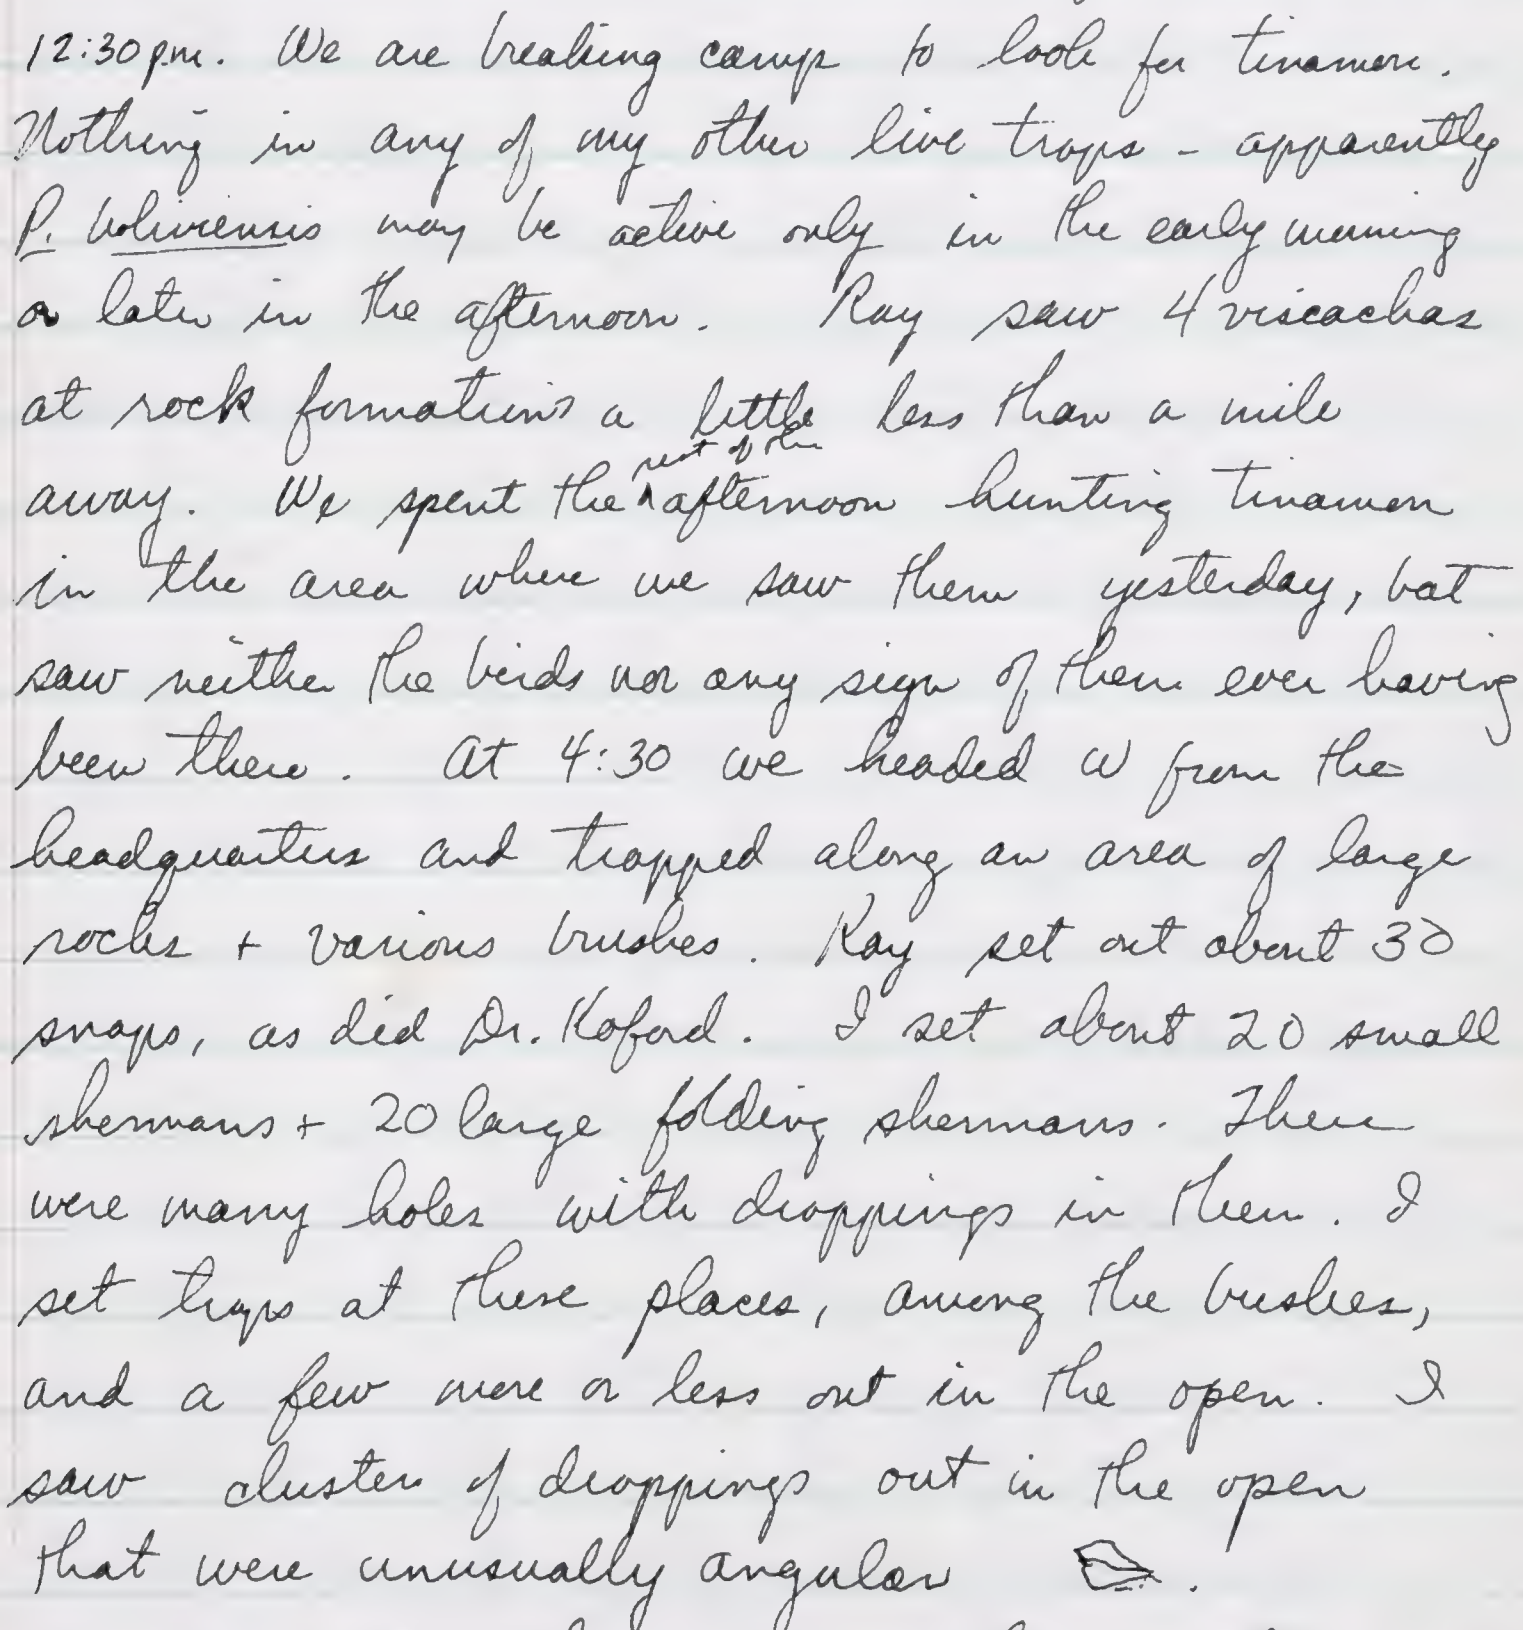 12:30 p.m. We are breaking camp to look for tinamou.
Nothing in any of my other live traps - apparently
P. boliviensis may be active only in the early morning
or later in the afternoon. Ray saw 4 viscachas
at rock formations a little less than a mile
rest of the
away. We spent the ^ afternoon hunting tinamou
in the area where we saw them yesterday, but
saw neither the birds nor any sign of them ever having
been there. At 4:30 we headed W from the
headquarters and trapped along an area of large
rocks + various brushes. Ray set out about 30
snaps, as did Dr. Koford. I set about 20 small
shermans + 20 large folding shermans. There
were many holes with droppings in them. I
set traps at these places, among the bushes,
and a few more or less out in the open. I
saw cluster of droppings out in the open
that were unusually angular .